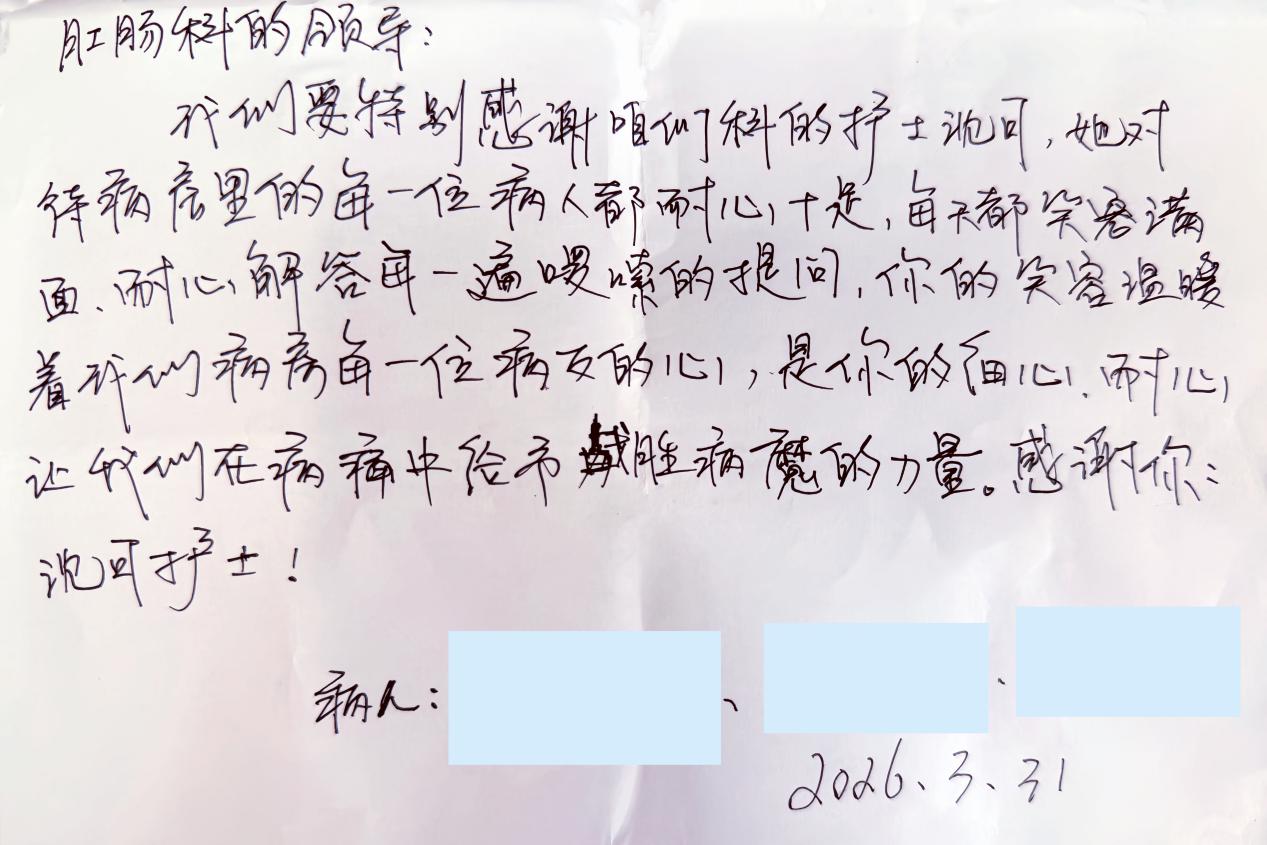 肛肠科的领导：
我们要特别感谢咱们科的护士沈可，她对
待病房里的每一位病人都耐心十足，每天都笑容满
面、耐心解答每一遍啰嗦的提问，你的笑容温暖
着我们病房每一位病友的心，是你的细心、耐心
让我们在病痛中给予战胜病魔的力量。感谢你：
沈可护士！
病人：、、
2026、3、31